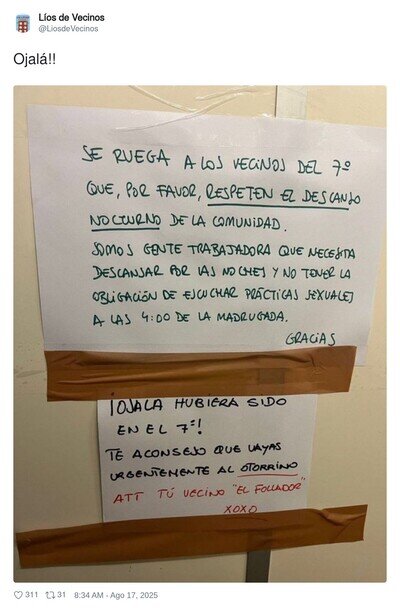 Líos de Vecinos
@LiosdeVecinos
Ojalá!!
SE RUEGA A LOS VECINOS DEL 7º
QUE, POR FAVOR, RESPETEN EL DESCANSO
NOCTURNO DE LA COMUNIDAD.
SOMOS GENTE TRABAJADORA QUE NECESITA
DESCANSAR POR LAS NOCHES Y NO TENER LA
OBLIGACIÓN DE ESCUCHAR PRÁCTICAS SEXUALES
A LAS 4:00 DE LA MADRUGADA.
GRACIAS
¡OJALA HUBIERA SIDO
EN EL 7º!
TE ACONSEJO QUE VAYAS
URGENTEMENTE AL OTORRINO
ATT TÚ VECINO "EL FOLLADOR"
XOXO
311 31 8:34 AM - Ago 17, 2025